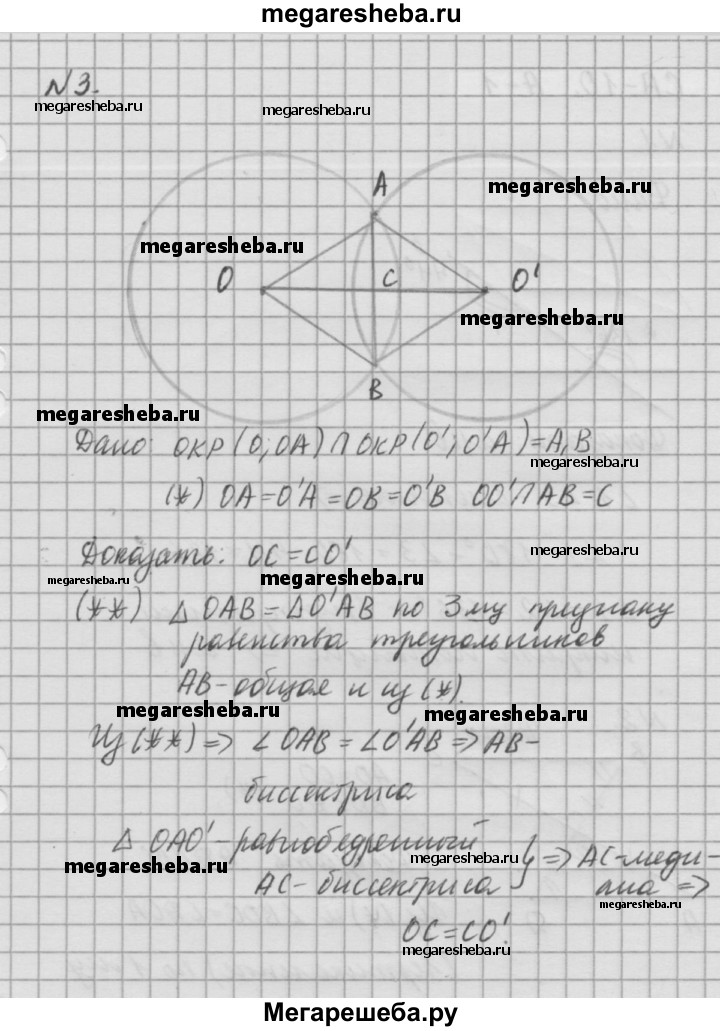 megaresheba.ru
N3.
megaresheba.ru
megaresheba.ru
A
megaresheba.ru
megaresheba.ru
O
C
O'
megaresheba.ru
B
megaresheba.ru
Дано: ОКР (O; OA) ∩ ОКР (O'; O'A) = A, B
megaresheba.ru
(*) OA = O'A = OB = O'B OO' ∩ AB = C
Доказать: OC = CO'
megaresheba.ru
megaresheba.ru
megaresheba.ru
(**) △ OAB = △ O'AB по 3му признаку
равенства треугольников
AB - общая и из (*).
megaresheba.ru
megaresheba.ru
Из (**) => ∠ OAB = ∠ O'AB => AB -
биссектриса
△ OAO' - равнобедренный
megaresheba.ru
megaresheba.ru
AC - биссектриса } => AC - меди-
ана =>
megaresheba.ru
OC = CO'.
megaresheba.ru
Мегарешеба.ру